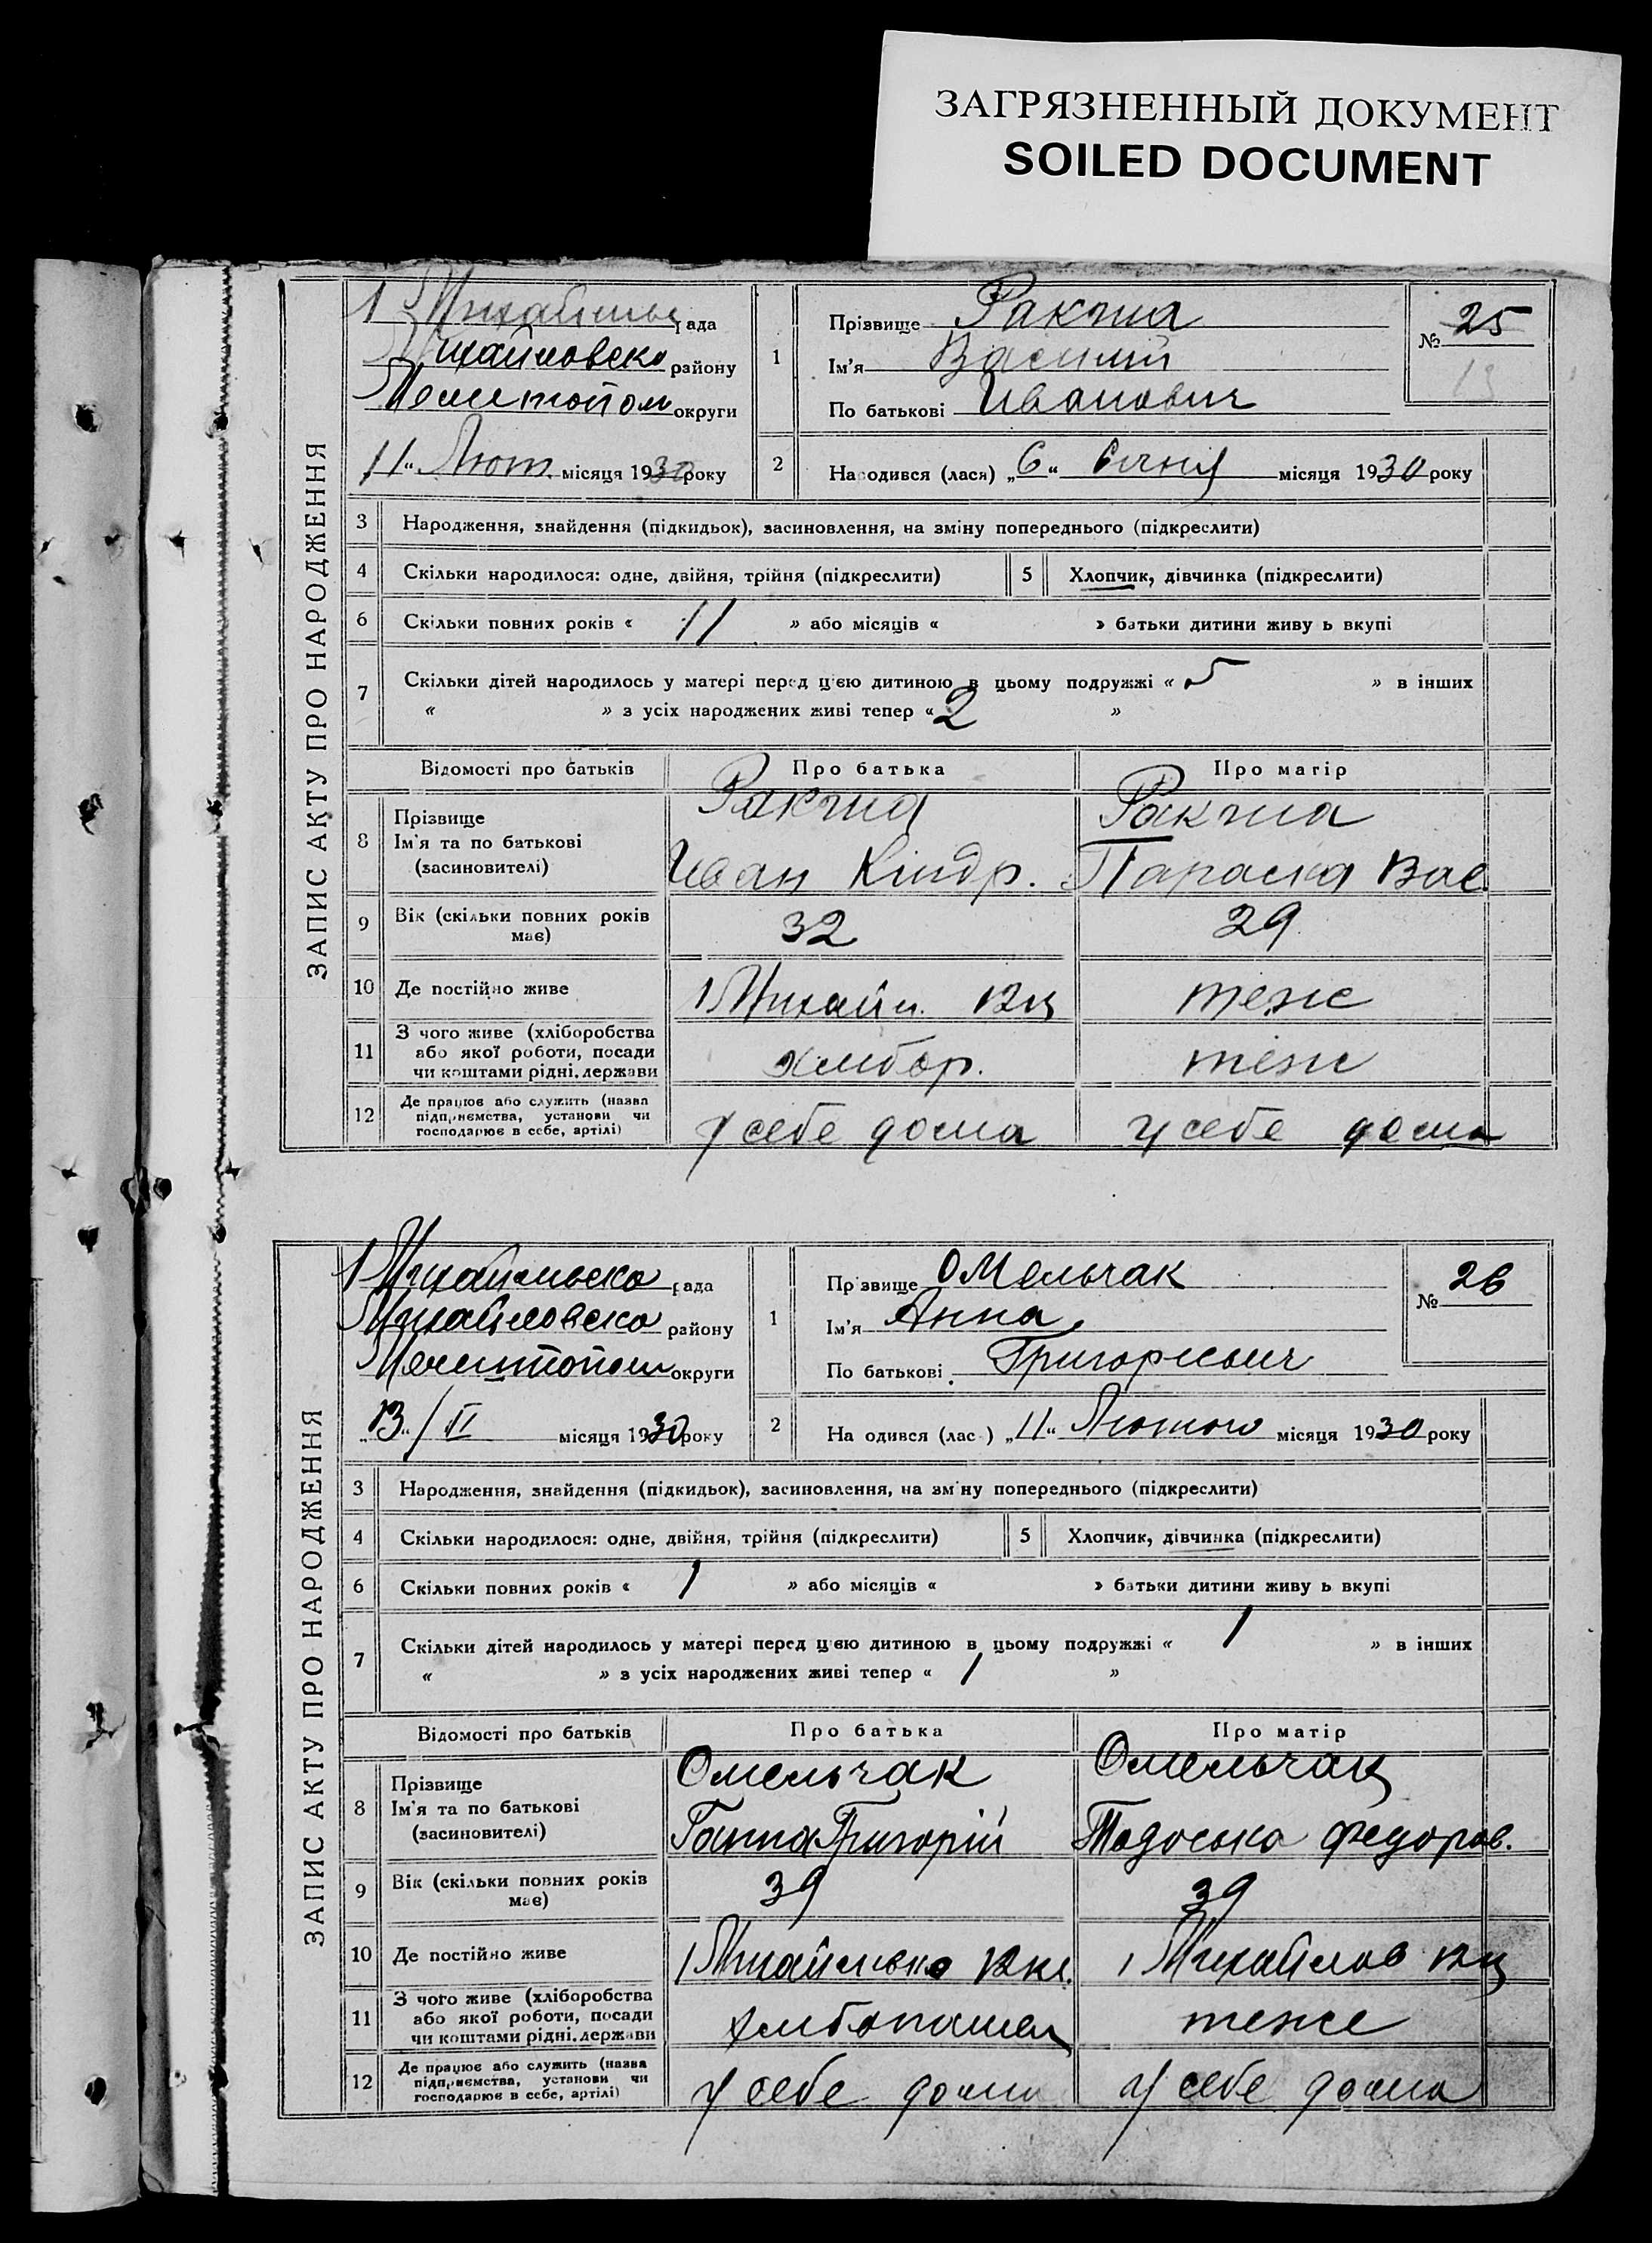 ЗАГРЯЗНЕННЫЙ ДОКУМЕНТ
SOILED DOCUMENT
ЗАПИС АКТУ ПРО НАРОДЖЕННЯ
1 Михайльс рада
Михайловско району
Мелитопол округи
„11“ Лют. місяця 1930 року
1
Прізвище
Ім'я Василий
По батькові Иванович
№ 25
13
2
Народився (лася) „6“ січня місяця 1930 року
3 Народження, знайдення (підкидьок), засиновлення, на зміну попереднього (підкреслити)
4 Скільки народилося: одне, двійня, трійня (підкреслити) 5 Хлопчик, дівчинка (підкреслити)
6 Скільки повних років « 11 » або місяців « » батьки дитини живуть вкупі
7 Скільки дітей народилось у матері перед цією дитиною в цьому подружжі « 5 » в інших
« » з усіх народжених живі тепер « 2 »
Відомості про батьків Про батька Про матір
8 Прізвище
Ім'я та по батькові
(засиновителі)
Иван Кіндр. Параска Вас
9 Вік (скільки повних років має) 32 29
10 Де постійно живе 1 Михайл. теж
11 З чого живе (хліборобства або якої роботи, посади чи коштами рідні, держави хлибор. теж
12 Де працює або служить (назва підприємства, установи чи господарює в себе, артілі) у себе дома у себе дома
ЗАПИС АКТУ ПРО НАРОДЖЕННЯ
1 Михайльско рада
Михайловско району
Мелитопол округи
„13“/II місяця 1930 року
1
Прізвище Омельчак
Ім'я Анна
По батькові Григориевич
№ 26
2
Народився (лас ) „11“ Лютого місяця 1930 року
3 Народження, знайдення (підкидьок), засиновлення, на зміну попереднього (підкреслити)
4 Скільки народилося: одне, двійня, трійня (підкреслити) 5 Хлопчик, дівчинка (підкреслити)
6 Скільки повних років « 1 » або місяців « » батьки дитини живуть вкупі
7 Скільки дітей народилось у матері перед цією дитиною в цьому подружжі « 1 » в інших
« » з усіх народжених живі тепер « 1 »
Відомості про батьків Про батька Про матір
8 Прізвище Омельчак Омельчак
Ім'я та по батькові
(засиновителі) Ганна Григорій Тодоська Федоров.
9 Вік (скільки повних років має) 39 39
10 Де постійно живе 1 Михайлівка 1 Михайлов
11 З чого живе (хліборобства або якої роботи, посади чи коштами рідні, держави теже
12 Де працює або служить (назва підприємства, установи чи господарює в себе, артілі) у себе дома у себе дома